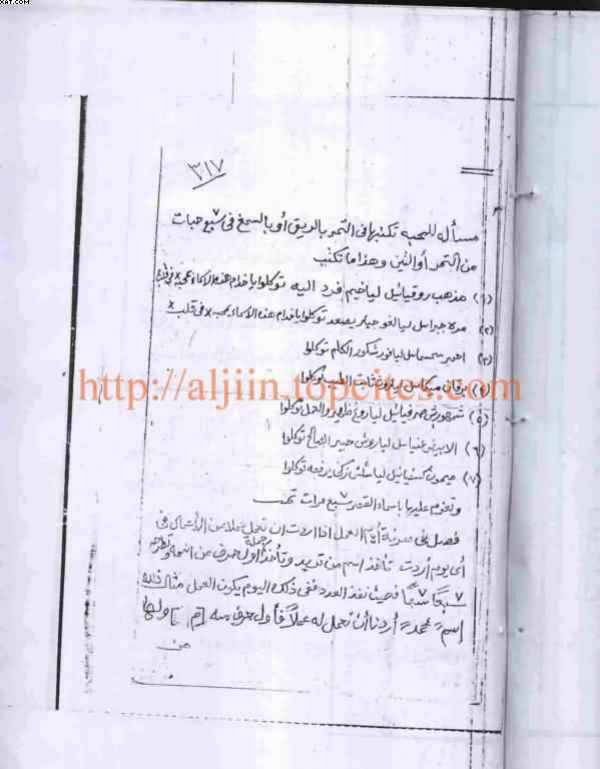 XAT.COM
٣١٧
مسألة للمحبه تكتبها في التمر بالريق أو بالسمغ في سبع حبات
من التمر أو التين وهذا ما تكتب
(١) مذهب روقيائيل لياخيم فرد اليه توكلوا يا خدام هذه الاسماء
(٢) مره جبرائيل ليالغو يصعد توكلوا يا خدام هذه الاسماء بمحبه x في قلب x
(٣) احمر سمسمائل ليافور شكور الكلم توكلوا
(٤) برقان ميكائيل ثابت الطيب توكلوا
http://aljiin.topcities.com
(٥) شمهورش صرفيائيل لياروغ ظهير والعمل توكلوا
(٦) الابيض عنيائيل لياروش خبير الصالح توكلوا
(٧) ميمون كسفيائيل لياشلش زكي يرفعه توكلوا
وتعزم عليها باسماء القمر سبع مرات تمت
فصل في معرفة أيام العمل اذا اردت ان تعمل عملا من الأعمال في
أى يوم أردت تأخذ اسم من تريد وتأخذ جملة أول حرف من اسمه وتطرحه
٧ سبعًا سبعًا ٧ فحيث نفذ العدد ففى ذلك اليوم يكون العمل مثال ذلك
اسم = محمد = أردنا أن نعمل له عملاً فأول حرف منه [م] ولها
من